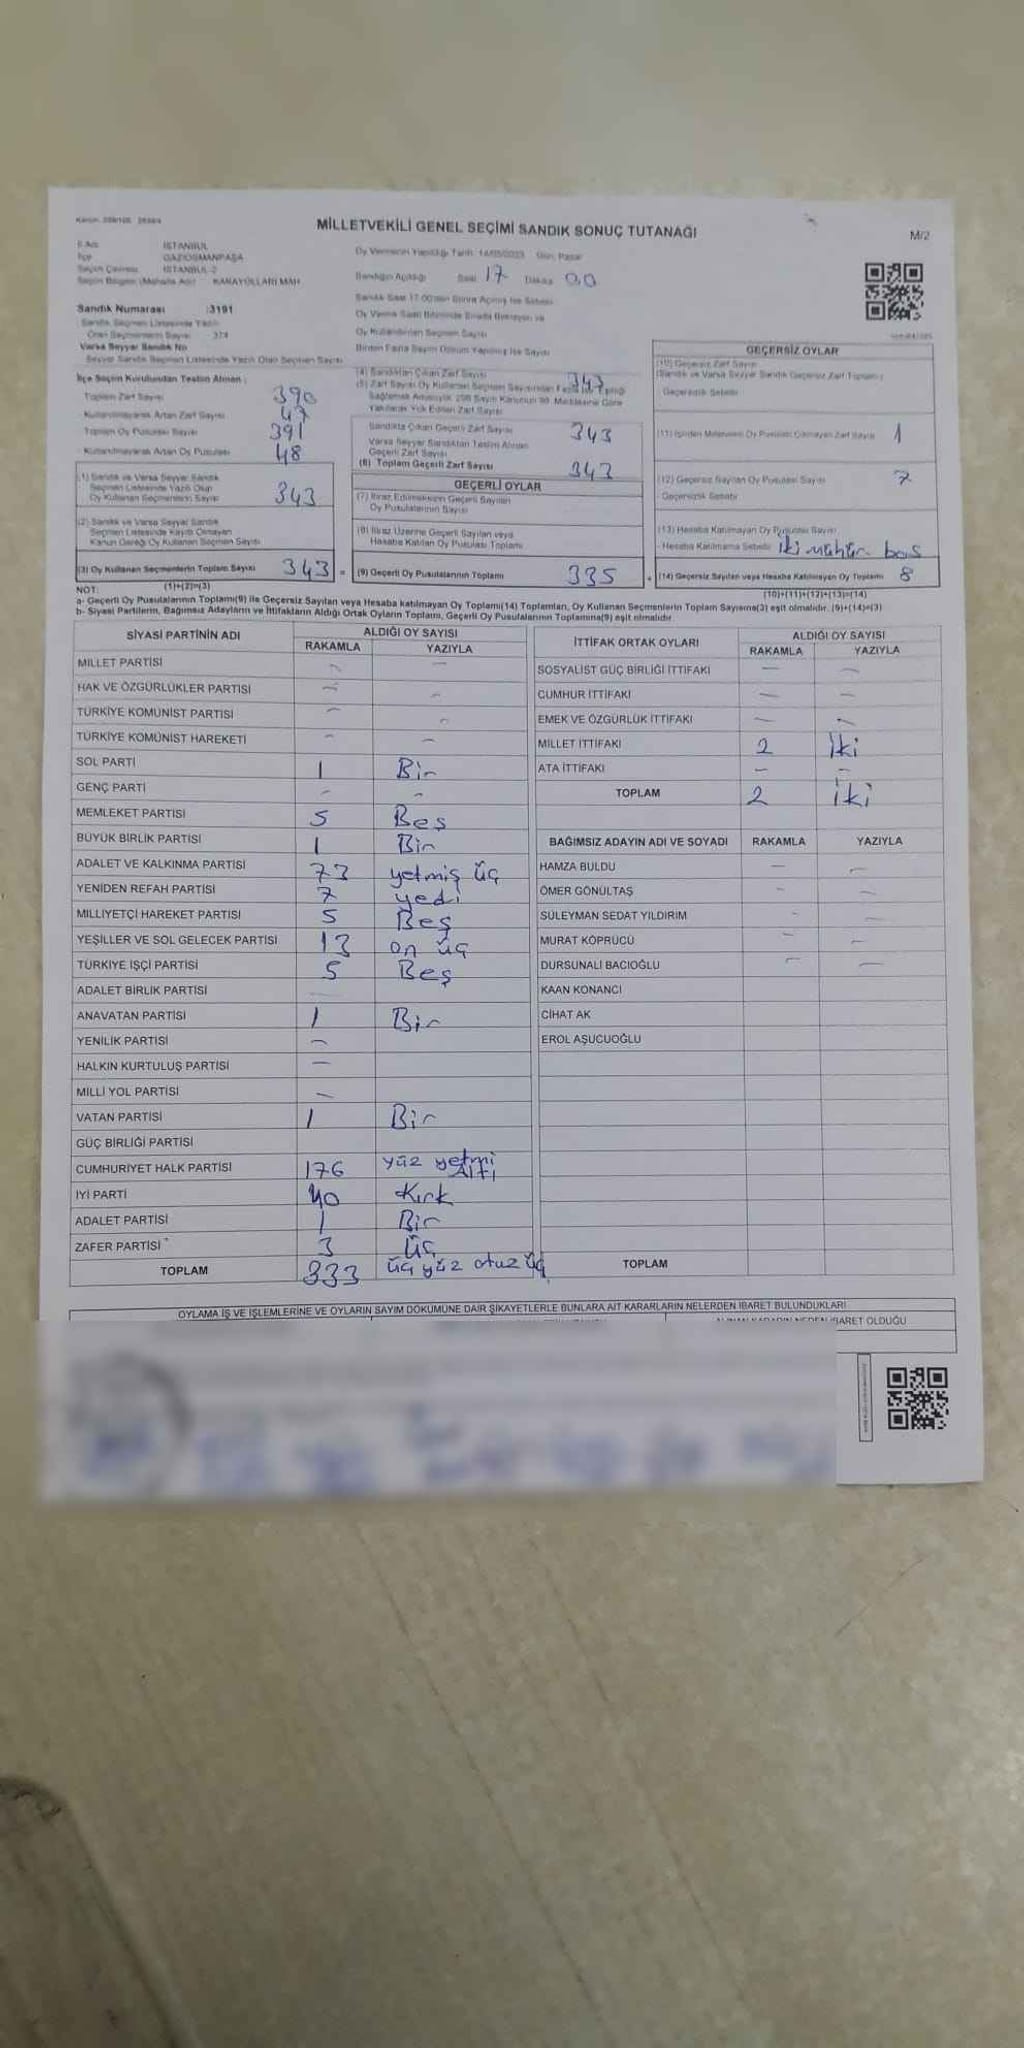 MİLLETVEKİLİ GENEL SEÇİMİ SANDIK SONUÇ TUTANAĞI
M/2
İl Adı İSTANBUL
İlçe GAZİOSMANPAŞA
Seçim Çevresi İSTANBUL-2
Seçim Bölgesi (Mahalle Adı) KARAYOLLARI MAH
Sandık Numarası :3191
Sandık Seçmen Listesinde Yazılı
Olan Seçmenlerin Sayısı 374
Varsa Seyyar Sandık No
Seyyar Sandık Seçmen Listesinde Yazılı Olan Seçmen Sayısı
İlçe Seçim Kurulundan Teslim Alınan :
Toplam Zarf Sayısı 390
Kullanılmayarak Artan Zarf Sayısı 47
Toplam Oy Pusulası Sayısı 391
Kullanılmayarak Artan Oy Pusulası 48
(1) Sandık ve Varsa Seyyar Sandık
Seçmen Listesinde Yazılı Olup
Oy Kullanan Seçmenlerin Sayısı 343
(2) Sandık ve Varsa Seyyar Sandık
Seçmen Listesinde Kayıtlı Olmayan
Kanun Gereği Oy Kullanan Seçmen Sayısı
(3) Oy Kullanan Seçmenlerin Toplam Sayısı 343 =
(1)+(2)=(3)
Oy Vermenin Yapıldığı Tarih 14/05/2023 Gün: Pazar
Sandığın Açıldığı Saat 17 Dakika 00
Sandık Saat 17.00'den Sonra Açılmış İse Sebebi
Oy Verme Saati Bitiminde Sırada Bekleyen ve
Oy Kullandırılan Seçmen Sayısı
Birden Fazla Sayım Döküm Yapılmış İse Sayısı
(4) Sandıktan Çıkan Zarf Sayısı 343
(5) Zarf Sayısı Oy Kullanan Seçmen Sayısından Fazla
Sağlamak Amacıyla 298 Sayılı Kanunun 98. Maddesine Göre
Yakılarak Yok Edilen Zarf Sayısı
Sandıkta Çıkan Geçerli Zarf Sayısı 343
Varsa Seyyar Sandıktan Teslim Alınan
Geçerli Zarf Sayısı
(6) Toplam Geçerli Zarf Sayısı 343
GEÇERLİ OYLAR
(7) İtiraz Edilmeksizin Geçerli Sayılan
Oy Pusulalarının Sayısı
(8) İtiraz Üzerine Geçerli Sayılan veya
Hesaba Katılan Oy Pusulası Toplamı
(9) Geçerli Oy Pusulalarının Toplamı 335 +
GEÇERSİZ OYLAR
(10) Geçersiz Zarf Sayısı
(Sandık ve Varsa Seyyar Sandık Geçersiz Zarf Toplamı)
Geçersizlik Sebebi
(11) İçinden Milletvekili Oy Pusulası Çıkmayan Zarf Sayısı 1
(12) Geçersiz Sayılan Oy Pusulası Sayısı 7
Geçersizlik Sebebi
(13) Hesaba Katılmayan Oy Pusulası Sayısı
Hesaba Katılmama Sebebi İki mühür boş
(14) Geçersiz Sayılan veya Hesaba Katılmayan Oy Toplamı 8
(10)+(11)+(12)+(13)=(14)
NOT:
a- Geçerli Oy Pusulalarının Toplamı(9) ile Geçersiz Sayılan veya Hesaba katılmayan Oy Toplamı(14) Toplamları, Oy Kullanan Seçmenlerin Toplam Sayısına(3) eşit olmalıdır. (9)+(14)=(3)
b- Siyasi Partilerin, Bağımsız Adayların ve İttifakların Aldığı Ortak Oyların Toplamı, Geçerli Oy Pusulalarının Toplamına(9) eşit olmalıdır.
SİYASİ PARTİNİN ADI ALDIĞI OY SAYISI
RAKAMLA YAZIYLA
MİLLET PARTİSİ - -
HAK VE ÖZGÜRLÜKLER PARTİSİ - -
TÜRKİYE KOMÜNİST PARTİSİ - -
TÜRKİYE KOMÜNİST HAREKETİ - -
SOL PARTİ 1 Bir
GENÇ PARTİ - -
MEMLEKET PARTİSİ 5 Beş
BÜYÜK BİRLİK PARTİSİ 1 Bir
ADALET VE KALKINMA PARTİSİ 73 yetmiş üç
YENİDEN REFAH PARTİSİ 7 yedi
MİLLİYETÇİ HAREKET PARTİSİ 5 Beş
YEŞİLLER VE SOL GELECEK PARTİSİ 13 on üç
TÜRKİYE İŞÇİ PARTİSİ 5 Beş
ADALET BİRLİK PARTİSİ -
ANAVATAN PARTİSİ 1 Bir
YENİLİK PARTİSİ -
HALKIN KURTULUŞ PARTİSİ -
MİLLİ YOL PARTİSİ -
VATAN PARTİSİ 1 Bir
GÜÇ BİRLİĞİ PARTİSİ
CUMHURİYET HALK PARTİSİ 176 yüz yetmi Altı
İYİ PARTİ 40 Kırk
ADALET PARTİSİ 1 Bir
ZAFER PARTİSİ 3 Üç
TOPLAM 333 üç yüz otuz üç
İTTİFAK ORTAK OYLARI ALDIĞI OY SAYISI
RAKAMLA YAZIYLA
SOSYALİST GÜÇ BİRLİĞİ İTTİFAKI - -
CUMHUR İTTİFAKI - -
EMEK VE ÖZGÜRLÜK İTTİFAKI - -
MİLLET İTTİFAKI 2 İki
ATA İTTİFAKI - -
TOPLAM 2 İki
BAĞIMSIZ ADAYIN ADI VE SOYADI RAKAMLA YAZIYLA
HAMZA BULDU - -
ÖMER GÖNÜLTAŞ - -
SÜLEYMAN SEDAT YILDIRIM - -
MURAT KÖPRÜCÜ - -
DURSUNALİ BACIOĞLU - -
KAAN KONANCI
CİHAT AK
EROL AŞUCUOĞLU
TOPLAM
OYLAMA İŞ VE İŞLEMLERİNE VE OYLARIN SAYIM DÖKÜMÜNE DAİR ŞİKAYETLERLE BUNLARA AİT KARARLARIN NELERDEN İBARET BULUNDUKLARI
ALINAN KARARIN NEDEN İBARET OLDUĞU